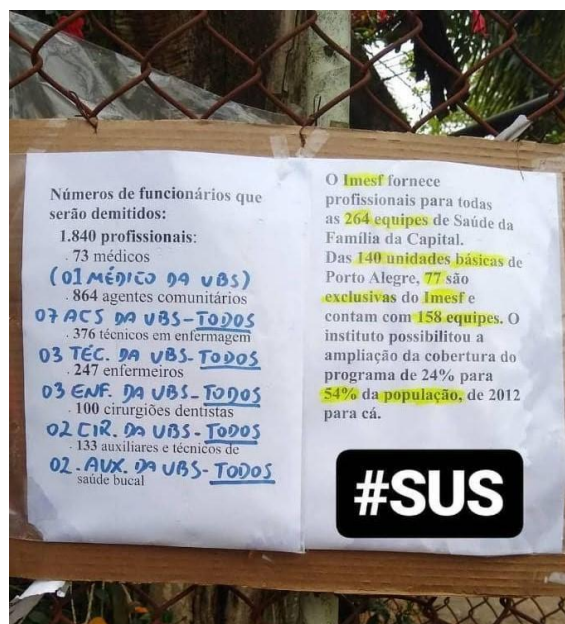 Números de funcionários que
serão demitidos:
1.840 profissionais:
. 73 médicos
(01 MÉDICO DA UBS)
. 864 agentes comunitários
07 ACS DA UBS - TODOS
. 376 técnicos em enfermagem
03 TÉC. DA UBS - TODOS
. 247 enfermeiros
03 ENF. DA UBS - TODOS
. 100 cirurgiões dentistas
02 CIR. DA UBS - TODOS
. 133 auxiliares e técnicos de
02. AUX. DA UBS - TODOS
saúde bucal
O Imesf fornece
profissionais para todas
as 264 equipes de Saúde da
Família da Capital.
Das 140 unidades básicas de
Porto Alegre, 77 são
exclusivas do Imesf e
contam com 158 equipes. O
instituto possibilitou a
ampliação da cobertura do
programa de 24% para
54% da população, de 2012
para cá.
#SUS